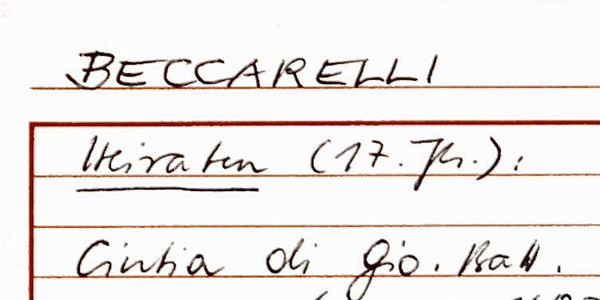 BECCARELLI
Heiraten (17. Jh.):
Cintia di Gio. Batt.